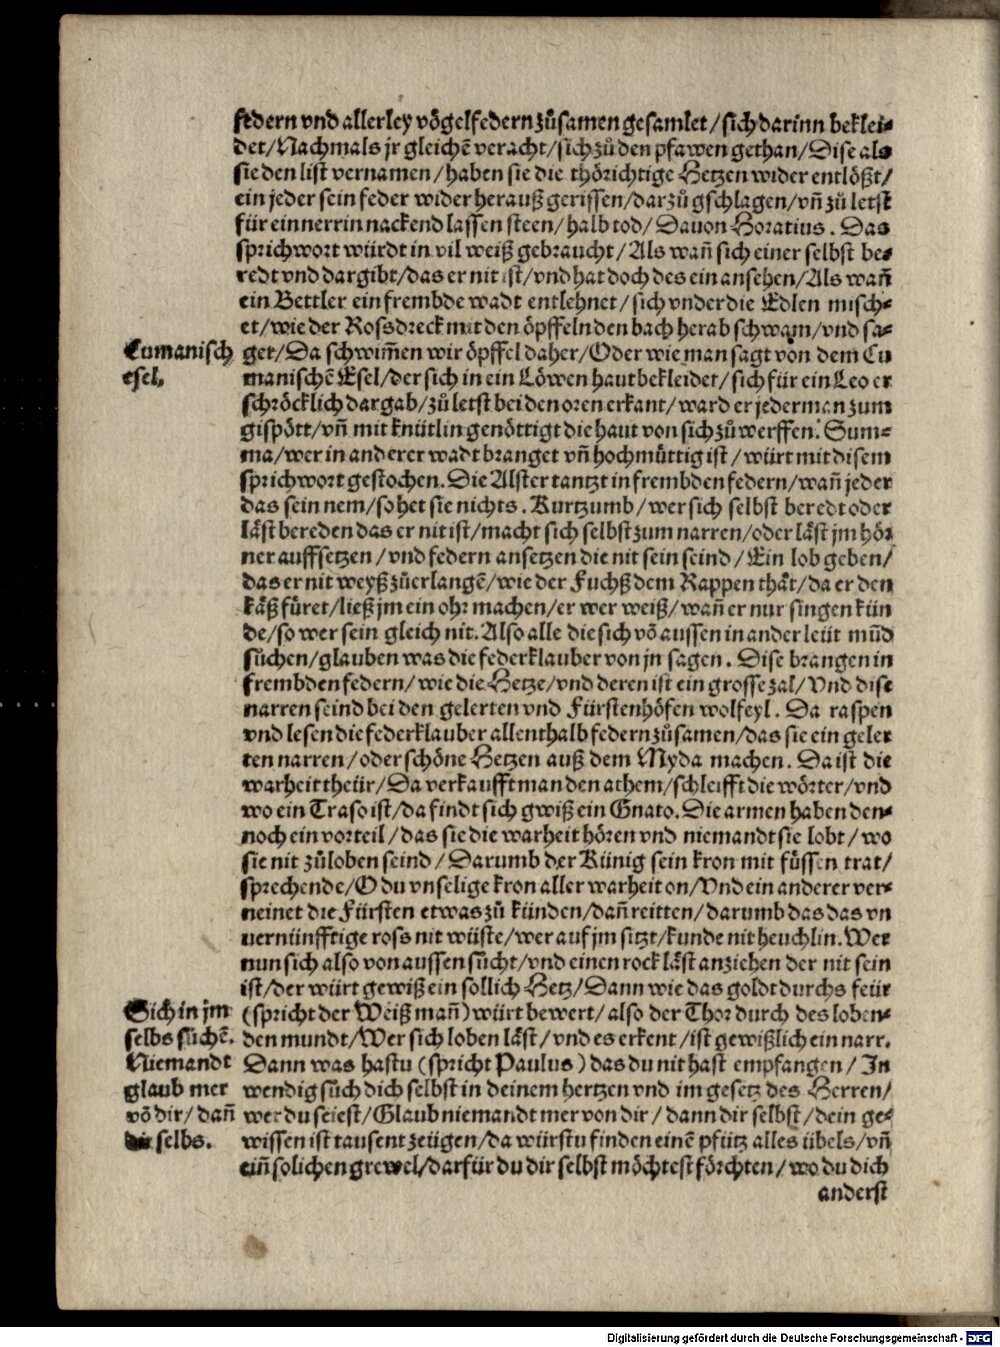 federn vnd allerley vögelfedern zůsamen gesamlet / sich darinn beklei⸗
det / Nachmals jr gleichẽ veracht / sich zů den pfawen gethan / Dise als
sie den list vernamen / haben sie die thörichtige Hetzen wider entlößt /
ein jeder sein feder wider herauß gerissen / darzů gschlagen / vñ zů letst
für ein nerrin nackend lassen steen / halb tod / Dauon Horatius. Das
sprichwort würdt in vil weiß gebraucht / Als wañ sich einer selbst be⸗
redt vnd dargibt / das er nit ist / vnd hat doch des ein ansehen / Als wañ
ein Bettler ein frembde wadt entlehnet / sich vnder die Edlen misch⸗
et / wie der Rossdreck mit den öpffeln den bach herab schwam / vnd sa⸗
Cumanisch
esel.
get / Da schwim̃en wir öpffel daher / Oder wie man sagt von dem Cu
manischẽ Esel / der sich in ein Löwen haut bekleidet / sich für ein Leo er
schröcklich dargab / zů letst bei den oren erkant / ward er jederman zum
gispött / vñ mit knütlin genöttigt die haut von sich zů werffen. Sum⸗
ma / wer in anderer wadt branget vñ hochmůttig ist / würt mit disem
sprichwort gestochen. Die Alster tantzt in frembden federn / wañ jeder
das sein nem / so het sie nichts. Kurtzumb / wer sich selbst beredt oder
läst bereden das er nit ist / macht sich selbst zum narren / oder läst jm hör
ner auffsetzen / vnd federn ansetzen die nit sein seind / Ein lob geben /
das er nit weyß zůerlangẽ / wie der Fuchß dem Rappen thät / da er den
käß füret / ließ jm ein ohr machen / er wer weiß / wañ er nur singen kün
de / so wer sein gleich nit. Also alle die sich võ aussen in ander leüt mũd
sůchen / glauben was die federklauber von jn sagen. Dise brangen in
frembden federn / wie die Hetze / vnd deren ist ein grosse zal / Vnd dise
narren seind bei den gelerten vnd Fürstenhöfen wolfeyl. Da raspen
vnd lesen die federklauber allenthalb federn zůsamen / das sie ein geler
ten narren / oder schöne Hetzen auß dem Myda machen. Da ist die
warheit theür / Da verkaufft man den athem / schleifft die wörter / vnd
wo ein Traso ist / da findt sich gwiß ein Gnato. Die armen haben den⸗
noch ein vorteil / das sie die warheit hören vnd niemandt sie lobt / wo
sie nit zůloben seind / Darumb der Künig sein kron mit füssen trat /
sprechende / O du vnselige kron aller warheit on / Vnd ein anderer ver⸗
neinet die Fürsten etwas zů künden / dañ reitten / darumb das das vn
uernünfftige ross nit wüste / wer auf jm sitzt / kunde nit heuchlin. Wer
nun sich also von aussen sůcht / vnd einen rock läst anziehen der nit sein
ist / der würt gewiß ein sollich Hetz / Dann wie das goldt durchs feür
Sich in jm
selbs sůchẽ.
Niemandt
glaub mer
võ dir / dañ
dir selbs.
(spricht der Weiß mañ) würt bewert / also der Thor durch des loben⸗
den mundt / Wer sich loben läst / vnd es erkent / ist gewißlich ein narr.
Dann was hastu (spricht Paulus) das du nit hast empfangen / In
wendig sůch dich selbst in deinem hertzen vnd im gesetz des Herren /
wer du seiest / Glaub niemandt mer von dir / dann dir selbst / dein ge⸗
wissen ist tausent zeügen / da würstu finden einẽ pfütz alles übels / vñ
eiñ solichen grewel / darfür du dir selbst möchtest förchten / wo du dich
anderst
Digitalisierung gefördert durch die Deutsche Forschungsgemeinschaft - DFG